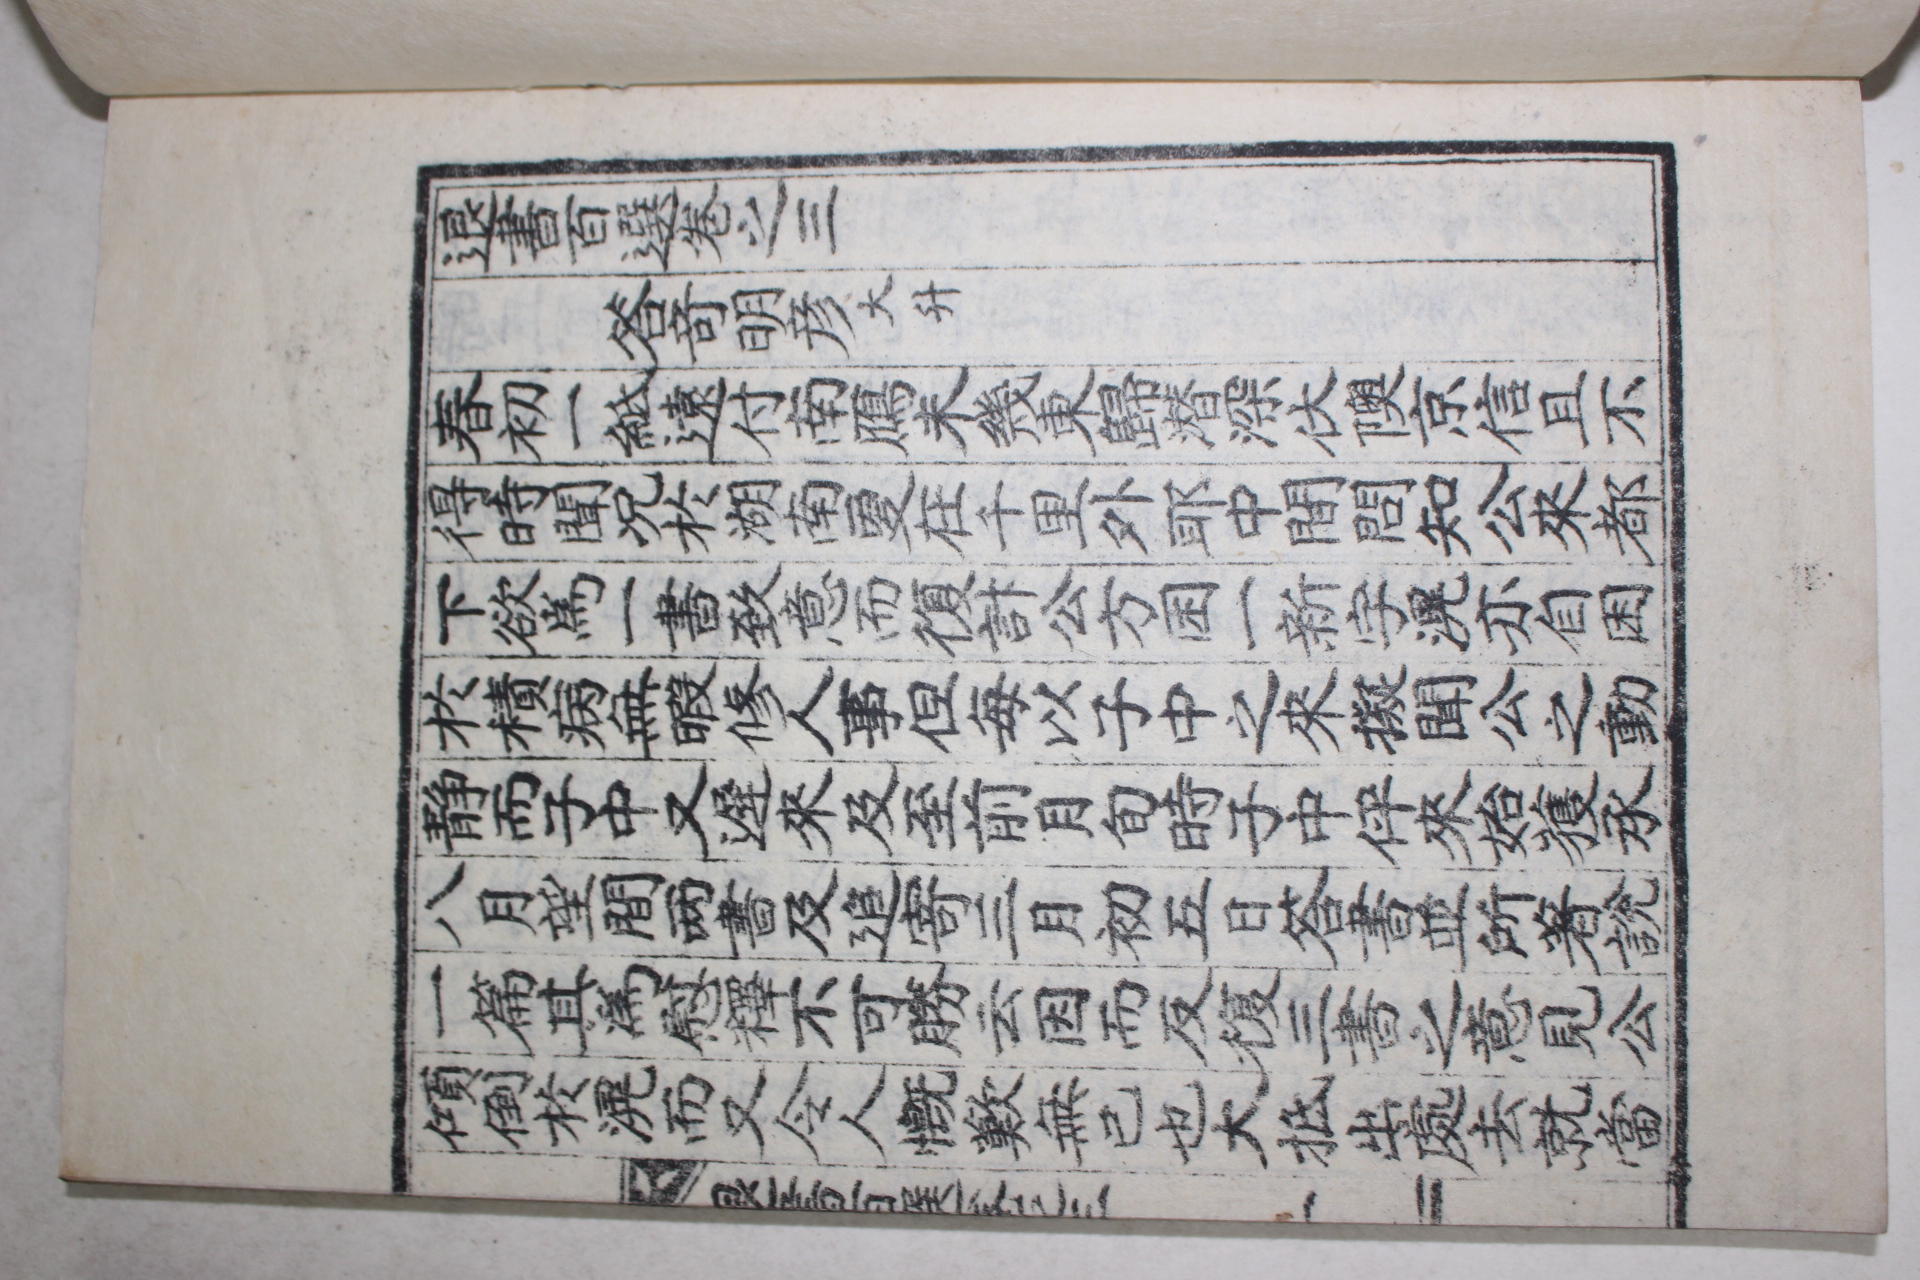 退書百選卷之三
答竒明彦 大升
春初一紙遠付南鴈未幾東歸潜深伏隩京信且不
得時聞况於湖南夐在千里外耶中間問知公來都
下欲爲一書致意而復計公方困一新字滉亦自困
於積病無暇修人事但每以子中之來擬聞公之動
静而子中又遲來及至前月旬時子中伻來始獲承
八月望間两書及追寄三月初五日答書並所著說
一篇其爲慰釋不可勝云因而反復三書之意見公
傾倒於滉而又令人慨歎無已也大抵出處去就當
退書百選卷之三 一